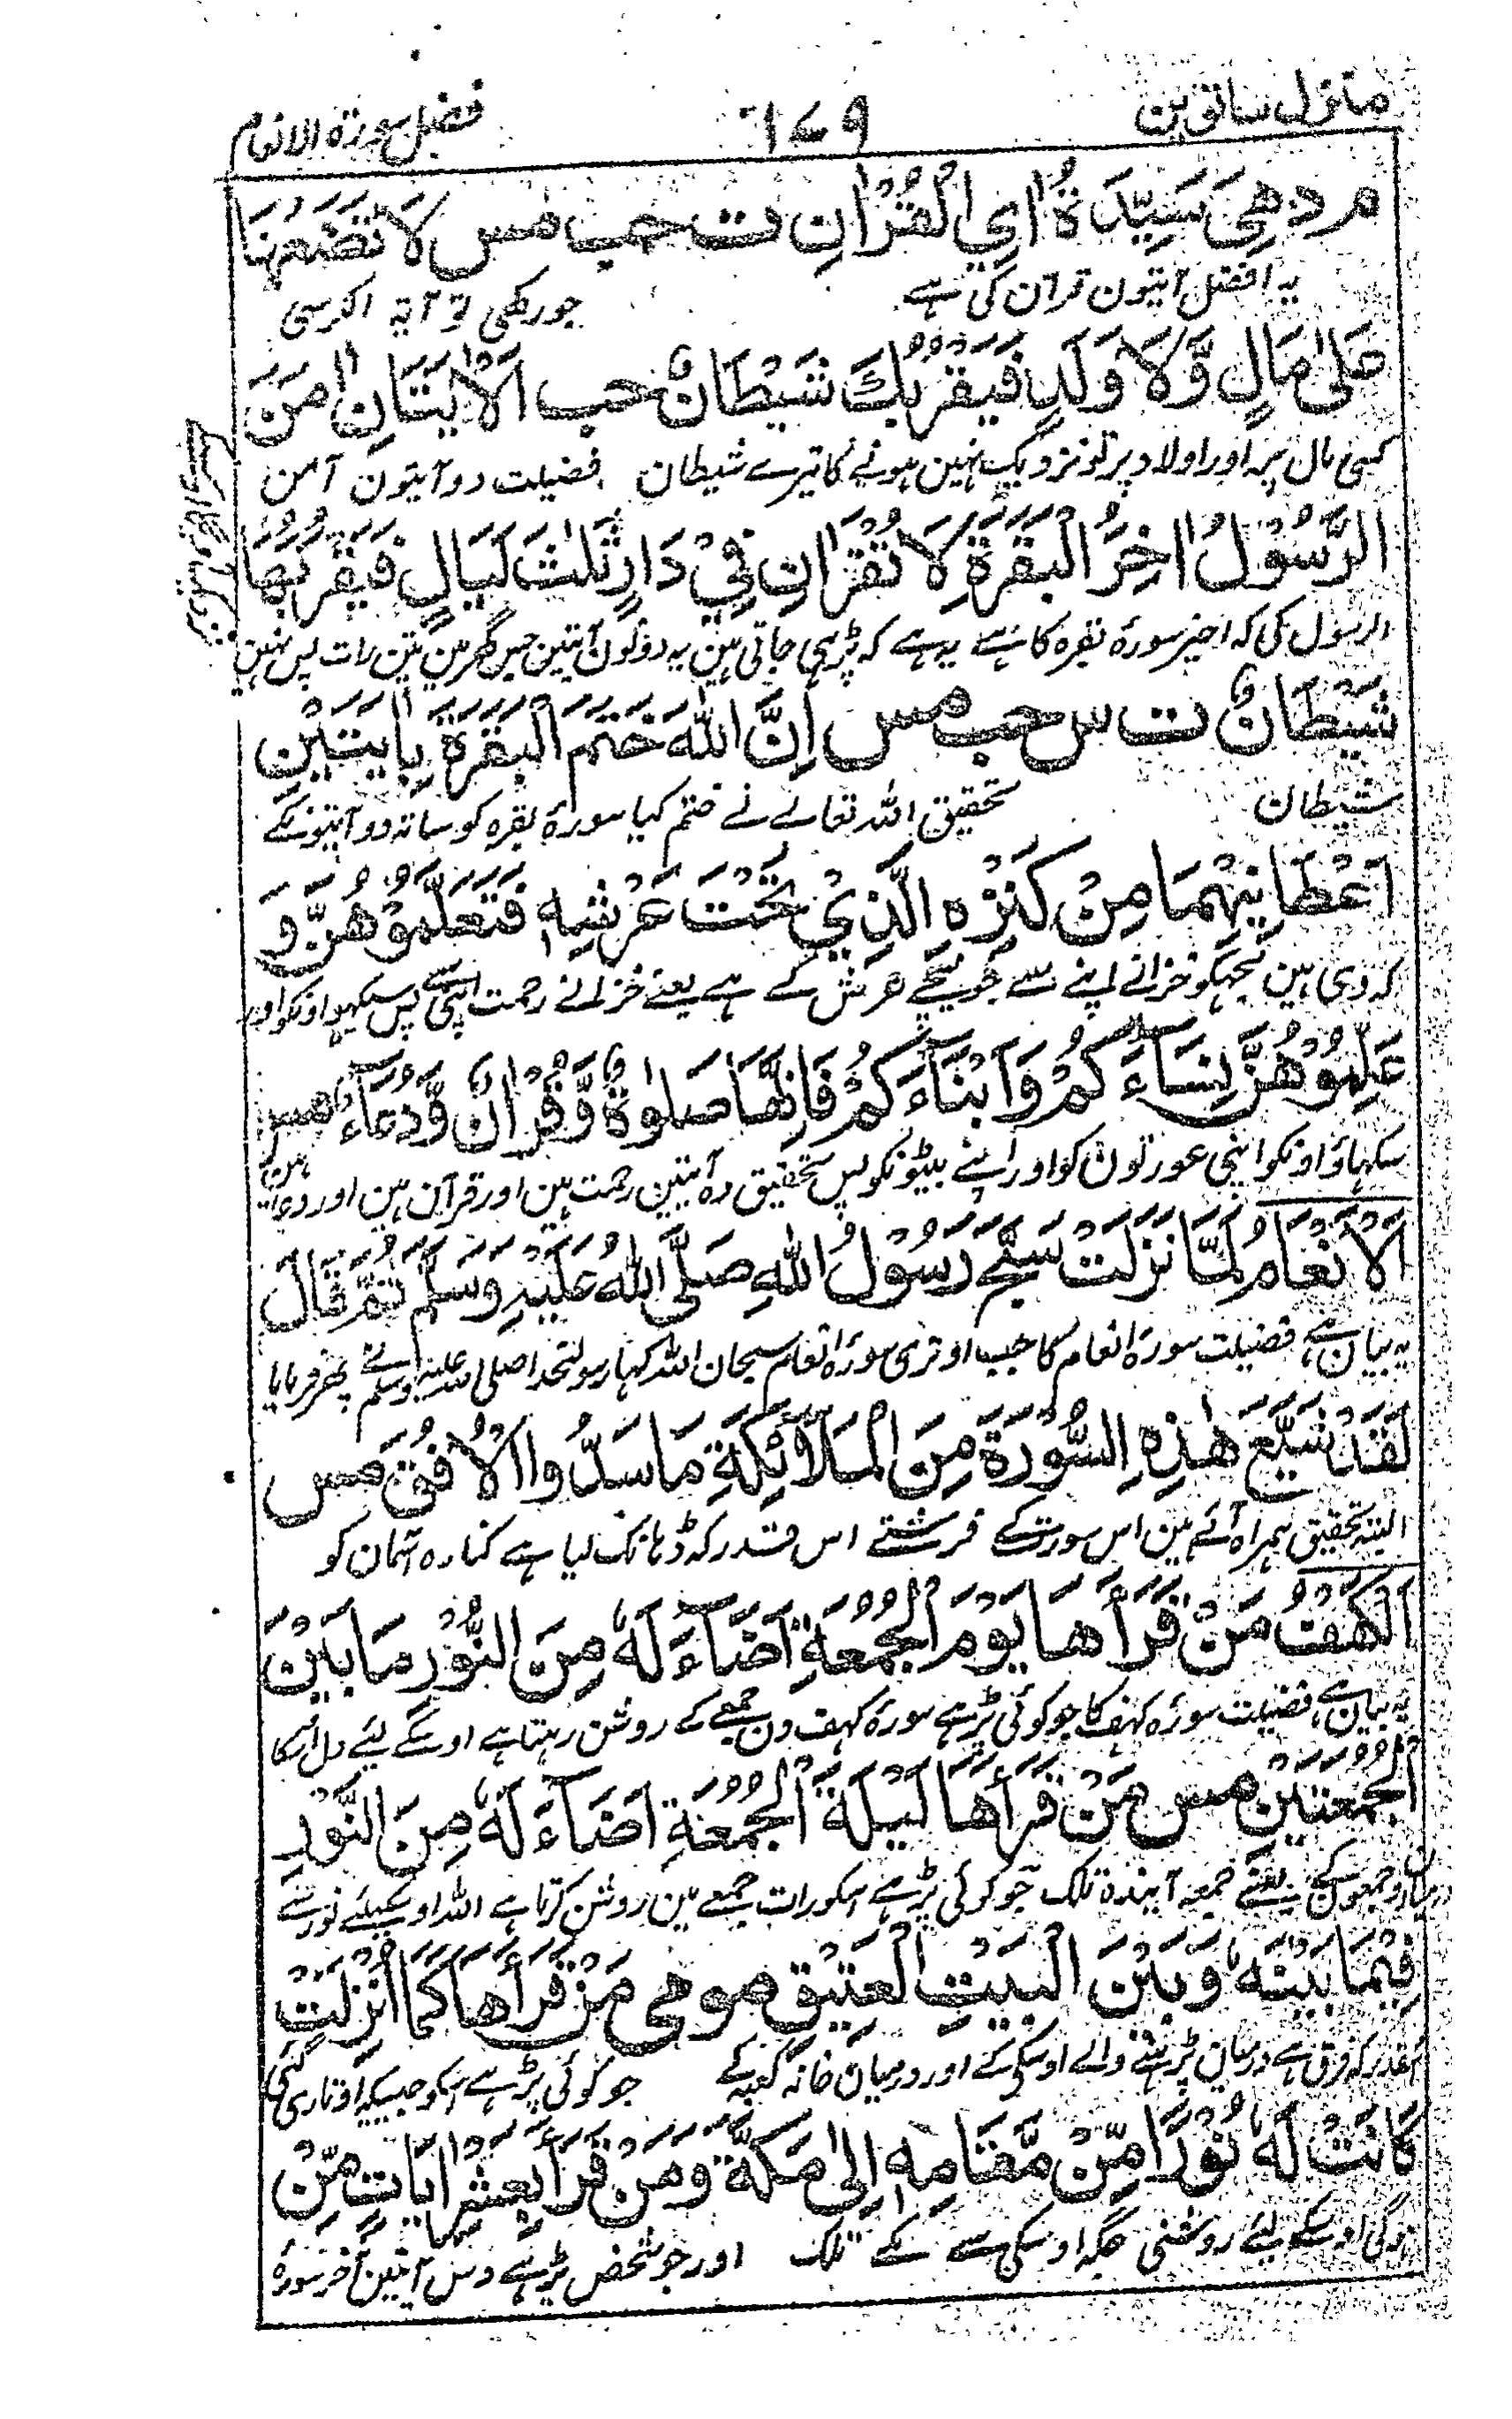 منزل ساتوین ۱۷۹ فضل سورة الانعام
م د هِيَ سَيِّدَةُ اٰيِ الْقُرْاٰنِ ت حب مس لَا تَضَعُهَا
یہ افضل آیتون قرآن کی ہے جو رکھی تو آیۃ الکرسی
عَلٰى مَالٍ وَّلَا وَلَدٍ فَيَقْرَبُكَ شَيْطَانٌ حب اَلْاٰيَتَانِ اٰمَنَ
کسی مال پر اور اولاد پر تو نزدیک نہین ہونے کا تیرے شیطان فضیلت دو آیتون آمن
الرَّسُوْلُ اٰخِرُ الْبَقَرَةِ لَا تُقْرَاٰنِ فِيْ دَارٍ ثَلٰثَ لَيَالٍ فَيَقْرَبُهَا
الرسول کی کہ اخیر سورۂ بقرہ کا ہے یہ ہے کہ پڑہی جاتی ہین یہ دونون آیتین جس گھر مین تین رات پس نہین
شَيْطَانٌ ت س حب مس اِنَّ اللّٰهَ خَتَمَ الْبَقَرَةَ بِاٰيَتَيْنِ
شیطان تحقیق اللہ تعالے نے ختم کیا سورۂ بقرہ کو ساتہ دو آیتونکے
اَعْطَانِيْهِمَا مِنْ كَنْزِهِ الَّذِيْ تَحْتَ عَرْشِهٖ فَتَعَلَّمُوْهُنَّ وَ
کہ دی ہین مجہکو خزانے اپنے سے جو نیچے عرش کے ہے یعنے خزانے رحمت اپنی سے پس سیکہو اونکو اور
عَلِّمُوْهُنَّ نِسَآءَكُمْ وَاَبْنَآءَكُمْ فَاِنَّهَا صَلٰوةٌ وَّقُرْاٰنٌ وَّدُعَآءٌ مس
سکہاؤ اونکو اپنی عورتون کو اور اپنے بیٹونکو پس تحقیق وہ آیتین رحمت ہین اور قرآن ہین اور دعا ہین
اَلْاَنْعَامُ لَمَّا نَزَلَتْ سَبَّحَ رَسُوْلُ اللّٰهِ صَلَّى اللّٰهُ عَلَيْهِ وَسَلَّمَ ثُمَّ قَالَ
یہ بیان ہے فضیلت سورۂ انعام کا جب اوتری سورۂ انعام سبحان اللہ کہا رسولخدا صلی اللہ علیہ وسلم نے پھر فرمایا
لَقَدْ شَيَّعَ هٰذِهِ السُّوْرَةَ مِنَ الْمَلَآئِكَةِ مَا سَدُّوا الْاُفُقَ مس
البتہ تحقیق ہمراہ آئے ہین اس سورت کے فرشتے اس قدر کہ ڈہانک لیا ہے کنارہ آسمان کو
اَلْكَهْفُ مَنْ قَرَأَهَا يَوْمَ الْجُمُعَةِ اَضَآءَ لَهٗ مِنَ النُّوْرِ مَا بَيْنَ
یہ بیان ہے فضیلت سورۂ کہف کا جو کوئی پڑہے سورۂ کہف دن جمعے کے روشن رہتا ہے اوسکے لیئے دل اسکا
الْجُمُعَتَيْنِ مس مَنْ قَرَأَهَا لَيْلَةَ الْجُمُعَةِ اَضَآءَ لَهٗ مِنَ النُّوْرِ
درمیان دو جمعون کے یعنے جمعہ آیندہ تلک جو کوئی پڑہے اسکو رات جمعے مین روشن کرتا ہے اللہ اوسکیلئے نور سے
فِيْمَا بَيْنَهٗ وَبَيْنَ الْبَيْتِ الْعَتِيْقِ مو مي مَنْ قَرَأَهَا كَمَا اُنْزِلَتْ
اسقدر کہ فرق ہے درمیان پڑہنے والے اوسکی کے اور درمیان خانہ کعبہ کے جو کوئی پڑہے اسکو جیسیکہ اوتاری گئی
كَانَتْ لَهٗ نُوْرًا مِّنْ مَّقَامِهٖ اِلٰى مَكَّةَ وَمَنْ قَرَأَ بِعَشْرِ اٰيَاتٍ مِّنْ
ہوگی اوسکے لیئے روشنی جگہ اوسکی سے مکے تلک اور جو شخص پڑہے دس آیتین آخر سورۂ